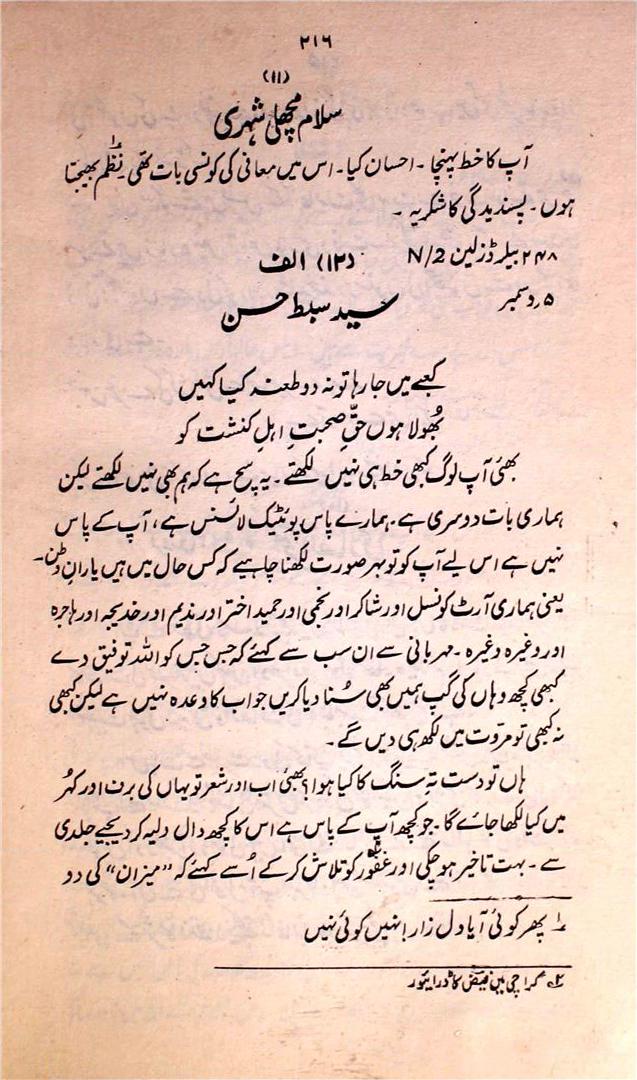 ۲۱۶
(۱۱)
سلام مچھلی شہری
آپ کا خط پہنچا ۔ احسان کیا ۔ اس میں معافی کی کونسی بات تھی ۔ نظم ۱؎ بھیجتا
ہوں ۔ پسندیدگی کا شکریہ ۔
۲۴۸ بیلرڈزلین N/2
(۱۲) الف
۵؍ دسمبر
سید سبط حسن
کعبے میں جا رہا تو نہ دو طعنہ کیا کہیں
بھُولا ہوں حقِّ صحبتِ اہلِ کنشت کو
بھئی آپ لوگ کبھی خط ہی نہیں لکھتے ۔ یہ سچ ہے کہ ہم بھی نہیں لکھتے لیکن
ہماری بات دوسری ہے ۔ ہمارے پاس پوئٹیک لائسنس ہے ، آپ کے پاس
نہیں ہے اس لیے آپ کو تو بہر صورت لکھنا چاہیے کہ کس حال میں ہیں یارانِ وطن ۔
یعنی ہماری آرٹ کونسل اور شاکر اور نجمی اور حمید اختر اور ندیم اور خدیجہ اور ہاجرہ
اور وغیرہ وغیرہ ۔ مہربانی سے ان سب سے کہئے کہ جس جس کو اللہ توفیق دے
کبھی کچھ وہاں کی گپ ہمیں بھی سُنا دیا کریں جواب کا وعدہ نہیں ہے لیکن کبھی
نہ کبھی تو مروّت میں لکھ ہی دیں گے ۔
ہاں تو دست تہِ سنگ کا کیا ہوا ؟ بھئی اب اور شعر تو یہاں کی برف اور کہُر
میں کیا لکھا جائے گا ۔ جو کچھ آپ کے پاس ہے اس کا کچھ دال دلیہ کر دیجیے جلدی
سے ۔ بہت تاخیر ہو چکی اور غفور ۲؎ کو تلاش کر کے اُسے کہئے کہ "میزان" کی دو
۱؎ پھر کوئی آیا دل زار! نہیں کوئی نہیں
۲؎ کراچی میں فیض کا ڈرائیور